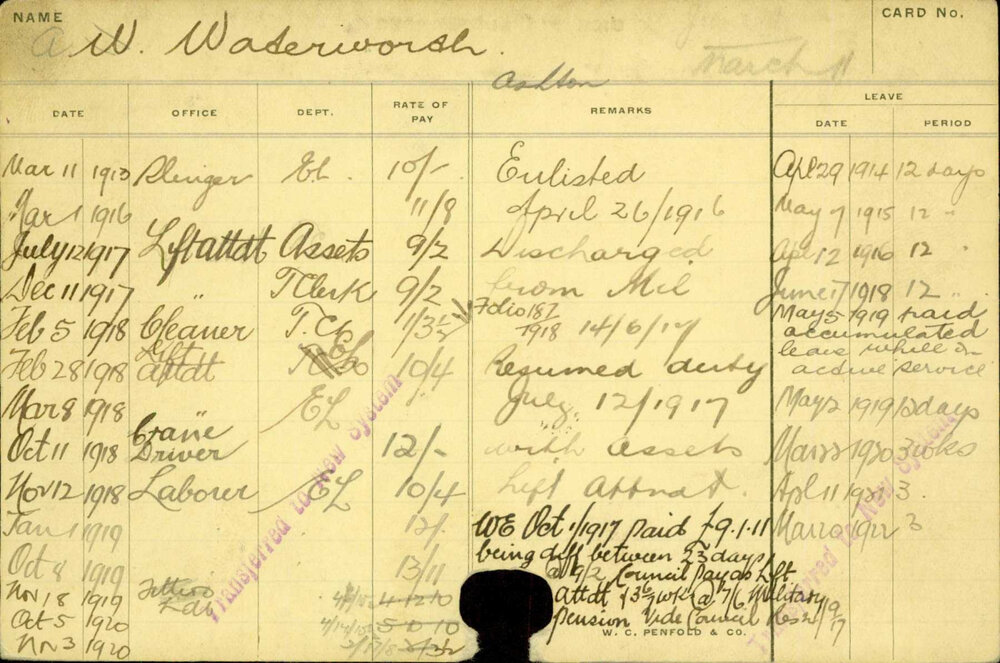 NAME
A W. Waterworth.
CARD No.
March 11
Ashton
DATE OFFICE DEPT. RATE OF PAY REMARKS LEAVE
DATE PERIOD
Mar 11 1913 EL. 10/-. Enlisted Apl 29 1914 12 days
Mar 1 1916 11/8 April 26/1916 May 7 1915 12 "
July 12 1917 Lift attdt Assets 9/2 Discharged Apl 12 1916 12 "
Dec 11 1917 " T Clerk 9/2 from Mil June 17 1918 12 "
Feb 5 1918 Cleaner T. Ck Folio 187 1918 14/6/17 May 5 1919 paid
accumulated
leave while on
active service
Feb 28 1918 Lift attdt EL 10/4 Resumed duty
Mar 8 1918 EL July 12/1917 May 2 1919 12 days
Oct 11 1918 Crane Driver 12/- with Assets Mar 22 1920 3 wks
Nov 12 1918 Laborer EL 10/4 Lift Attndt. Apl 11 1921 3
Jan 1 1919 12/. WE Oct 1/1917 paid £9.1.11 Mar 20 1922 3
being diff between 53 days
Oct 8 1919 13/11 @ 9/2 Council Pay as Lift
Nov 18 1919 Fitters Lab 4 12 10 Attdt & 3 6/7 wks @ 7/6 Military
Oct 5 1920 5 0 10 pension Vide Council Res
Nov 3 1920
Transferred to New System
Transferred to New System
W. C. PENFOLD & CO.